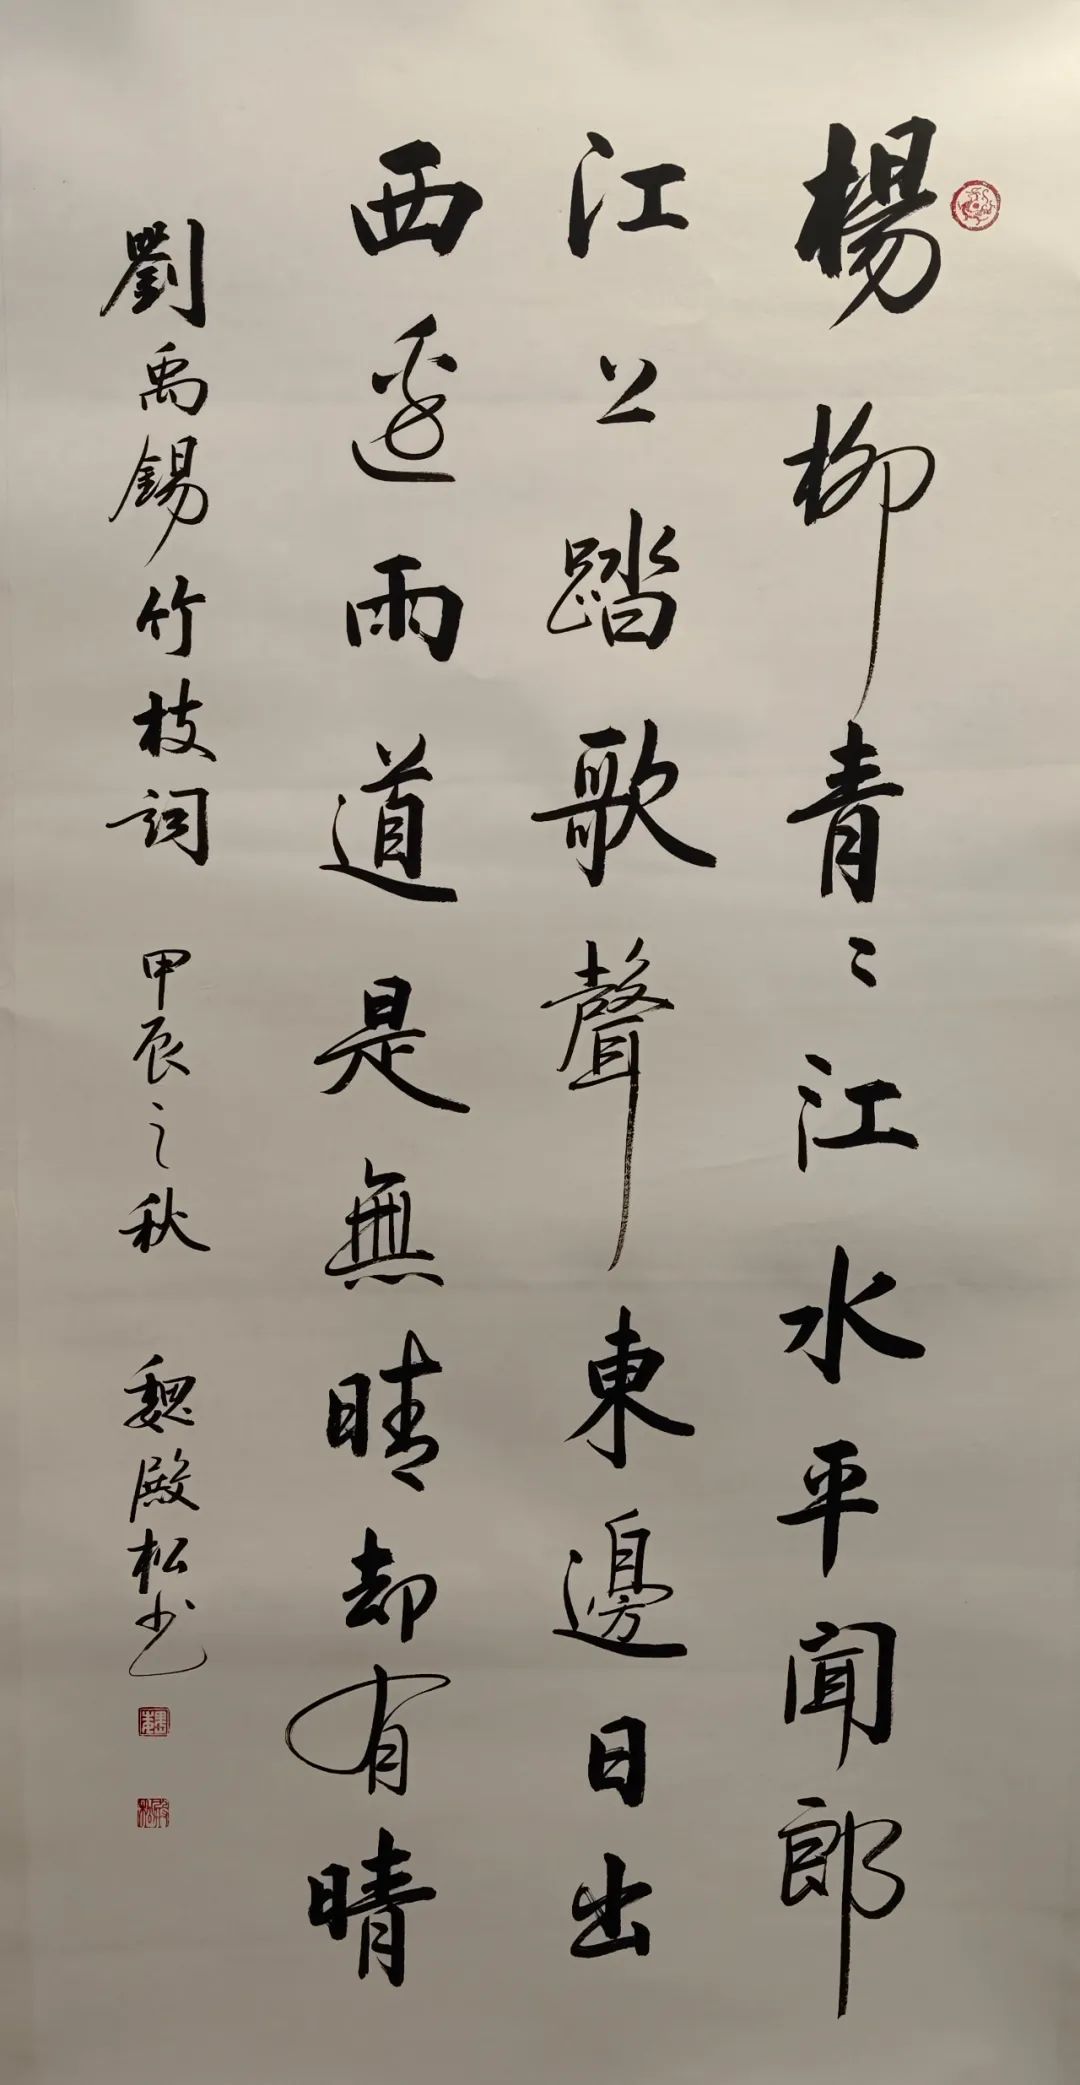 楊柳青〻江水平聞郎
江上踏歌聲東邊日出
西邊雨道是無晴却有晴
劉禹錫竹枝詞 甲辰之秋 魏殿松书